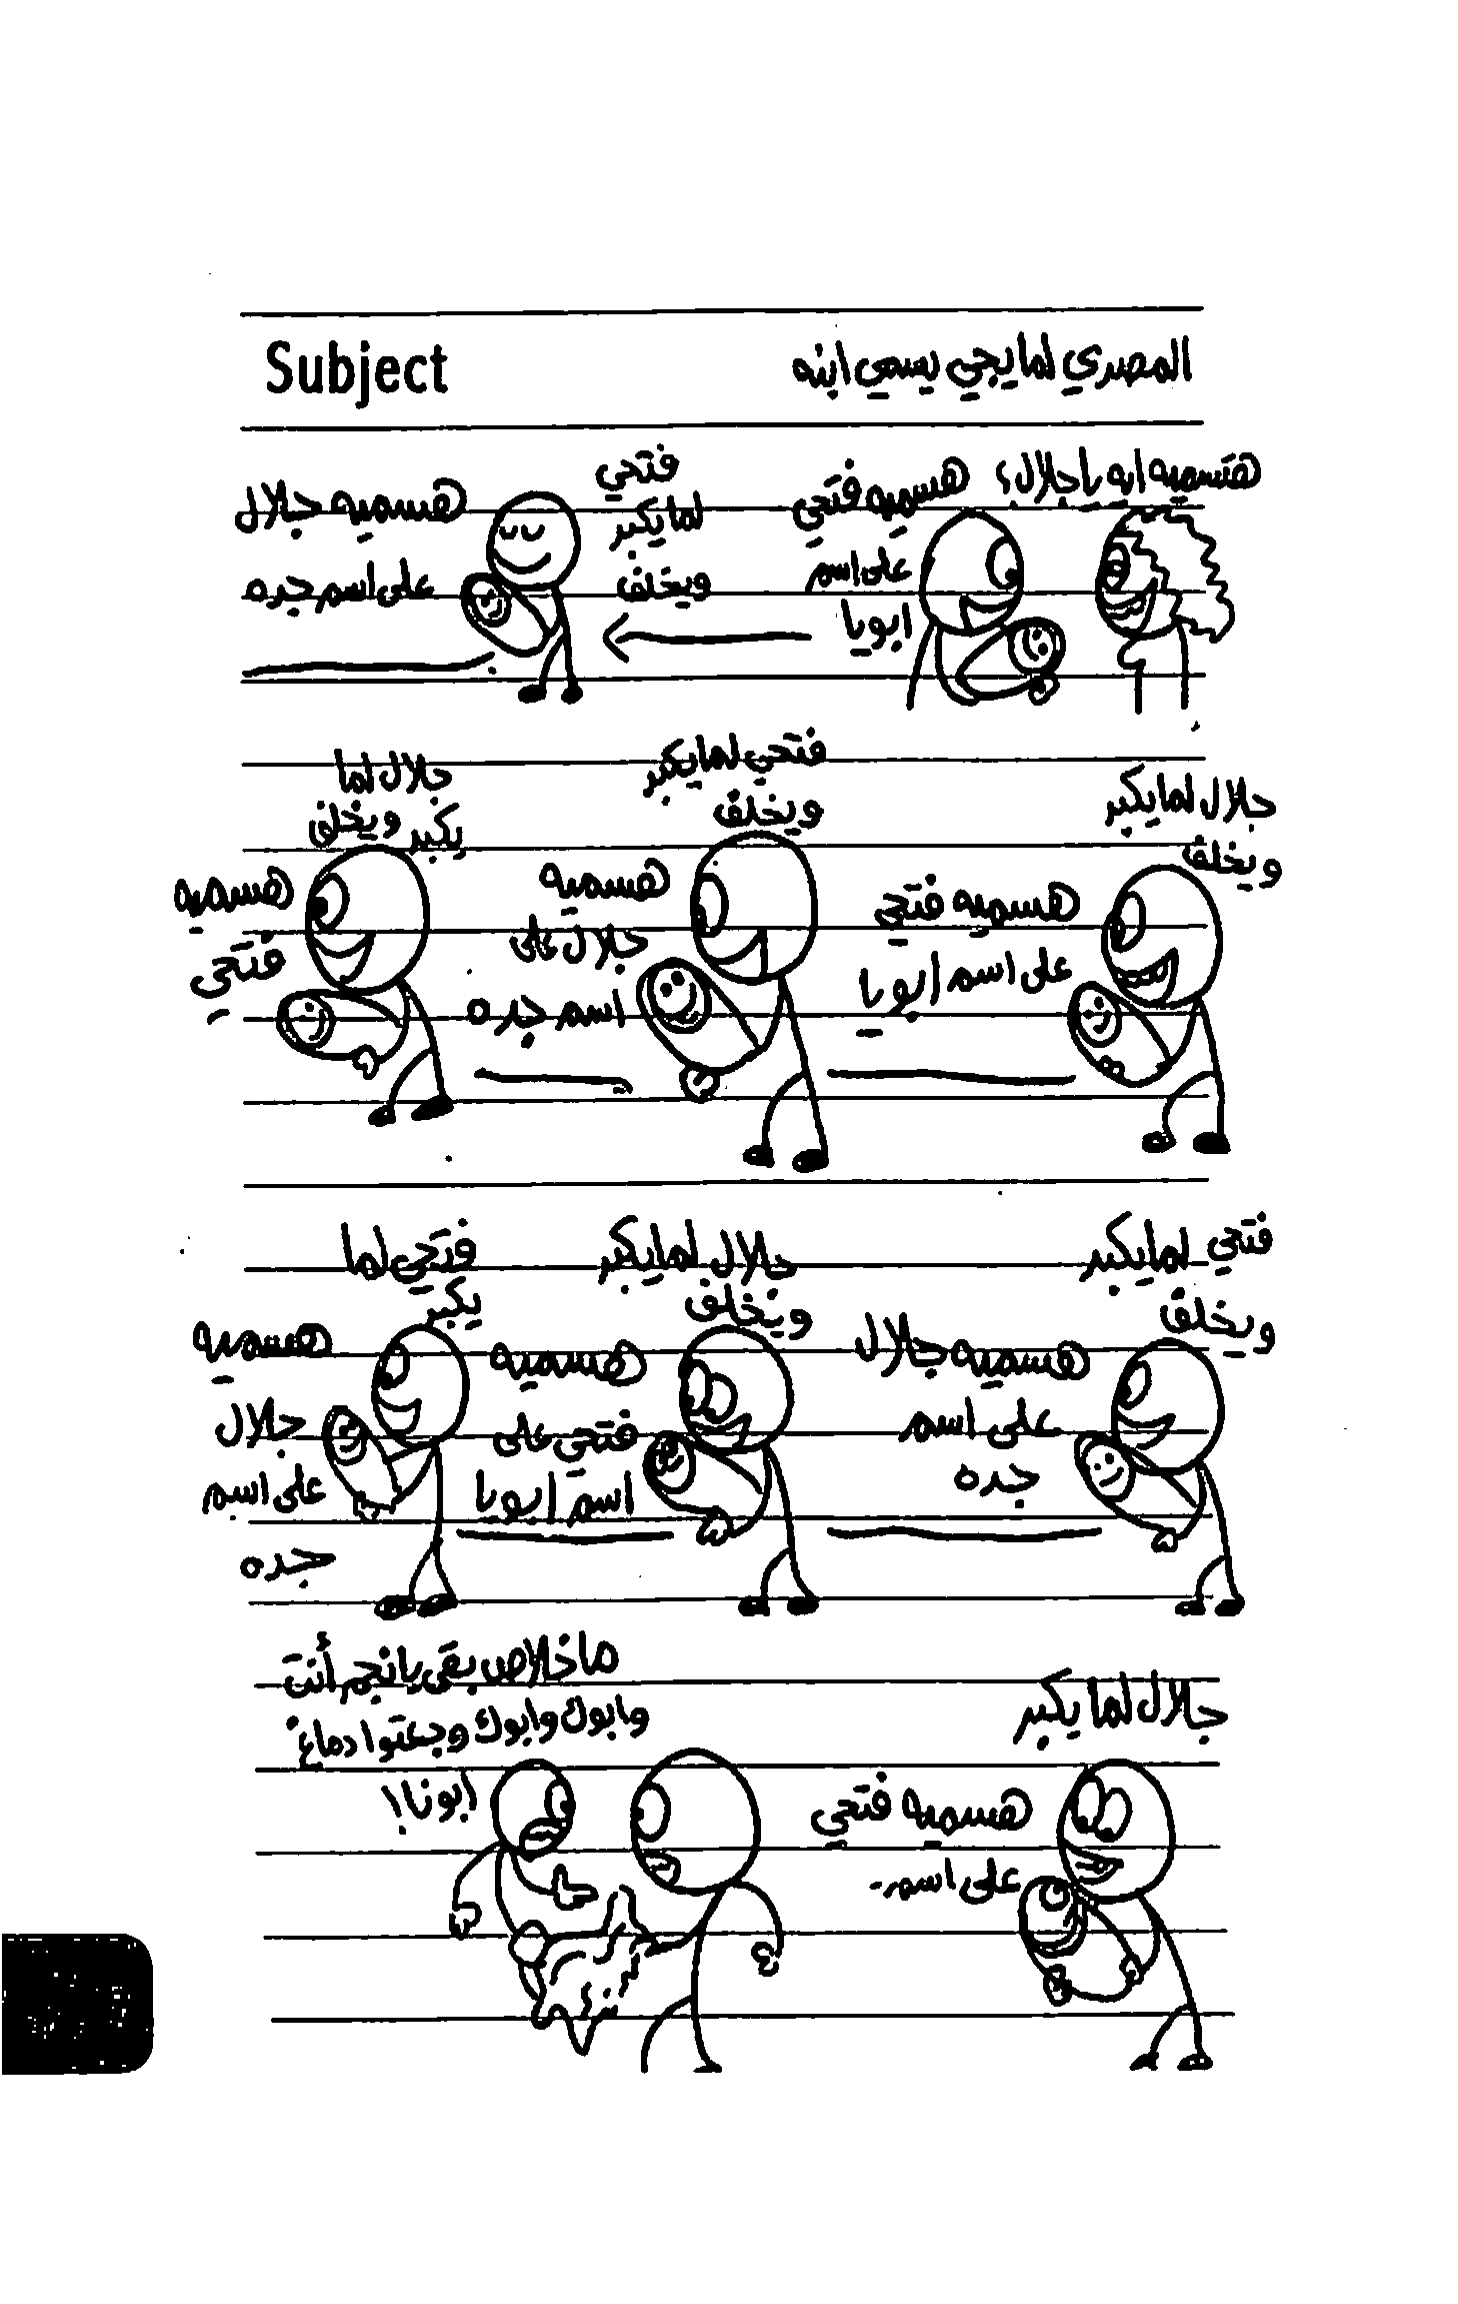 Subject
المصري لما يجي يسمي ابنه
هتسميه ايه يا جلال؟
هسميه فتحي
على اسم
ابويا
فتحي
لما يكبر
ويخلف
هسميه جلال
على اسم جده
جلال لما يكبر
ويخلف
هسميه فتحي
على اسم ابويا
فتحي لما يكبر
ويخلف
هسميه
جلال على
اسم جده
جلال لما
يكبر ويخلف
هسميه
فتحي
فتحي لما يكبر
ويخلف
هسميه جلال
على اسم
جده
جلال لما يكبر
ويخلف
هسميه
فتحي على
اسم ابويا
فتحي لما
يكبر
هسميه
جلال
على اسم
جده
جلال لما يكبر
هسميه فتحي
على اسم-
ما خلاص بقى يا نجم أنت
وابوك وابوك وجعتوا دماغ
ابونا!